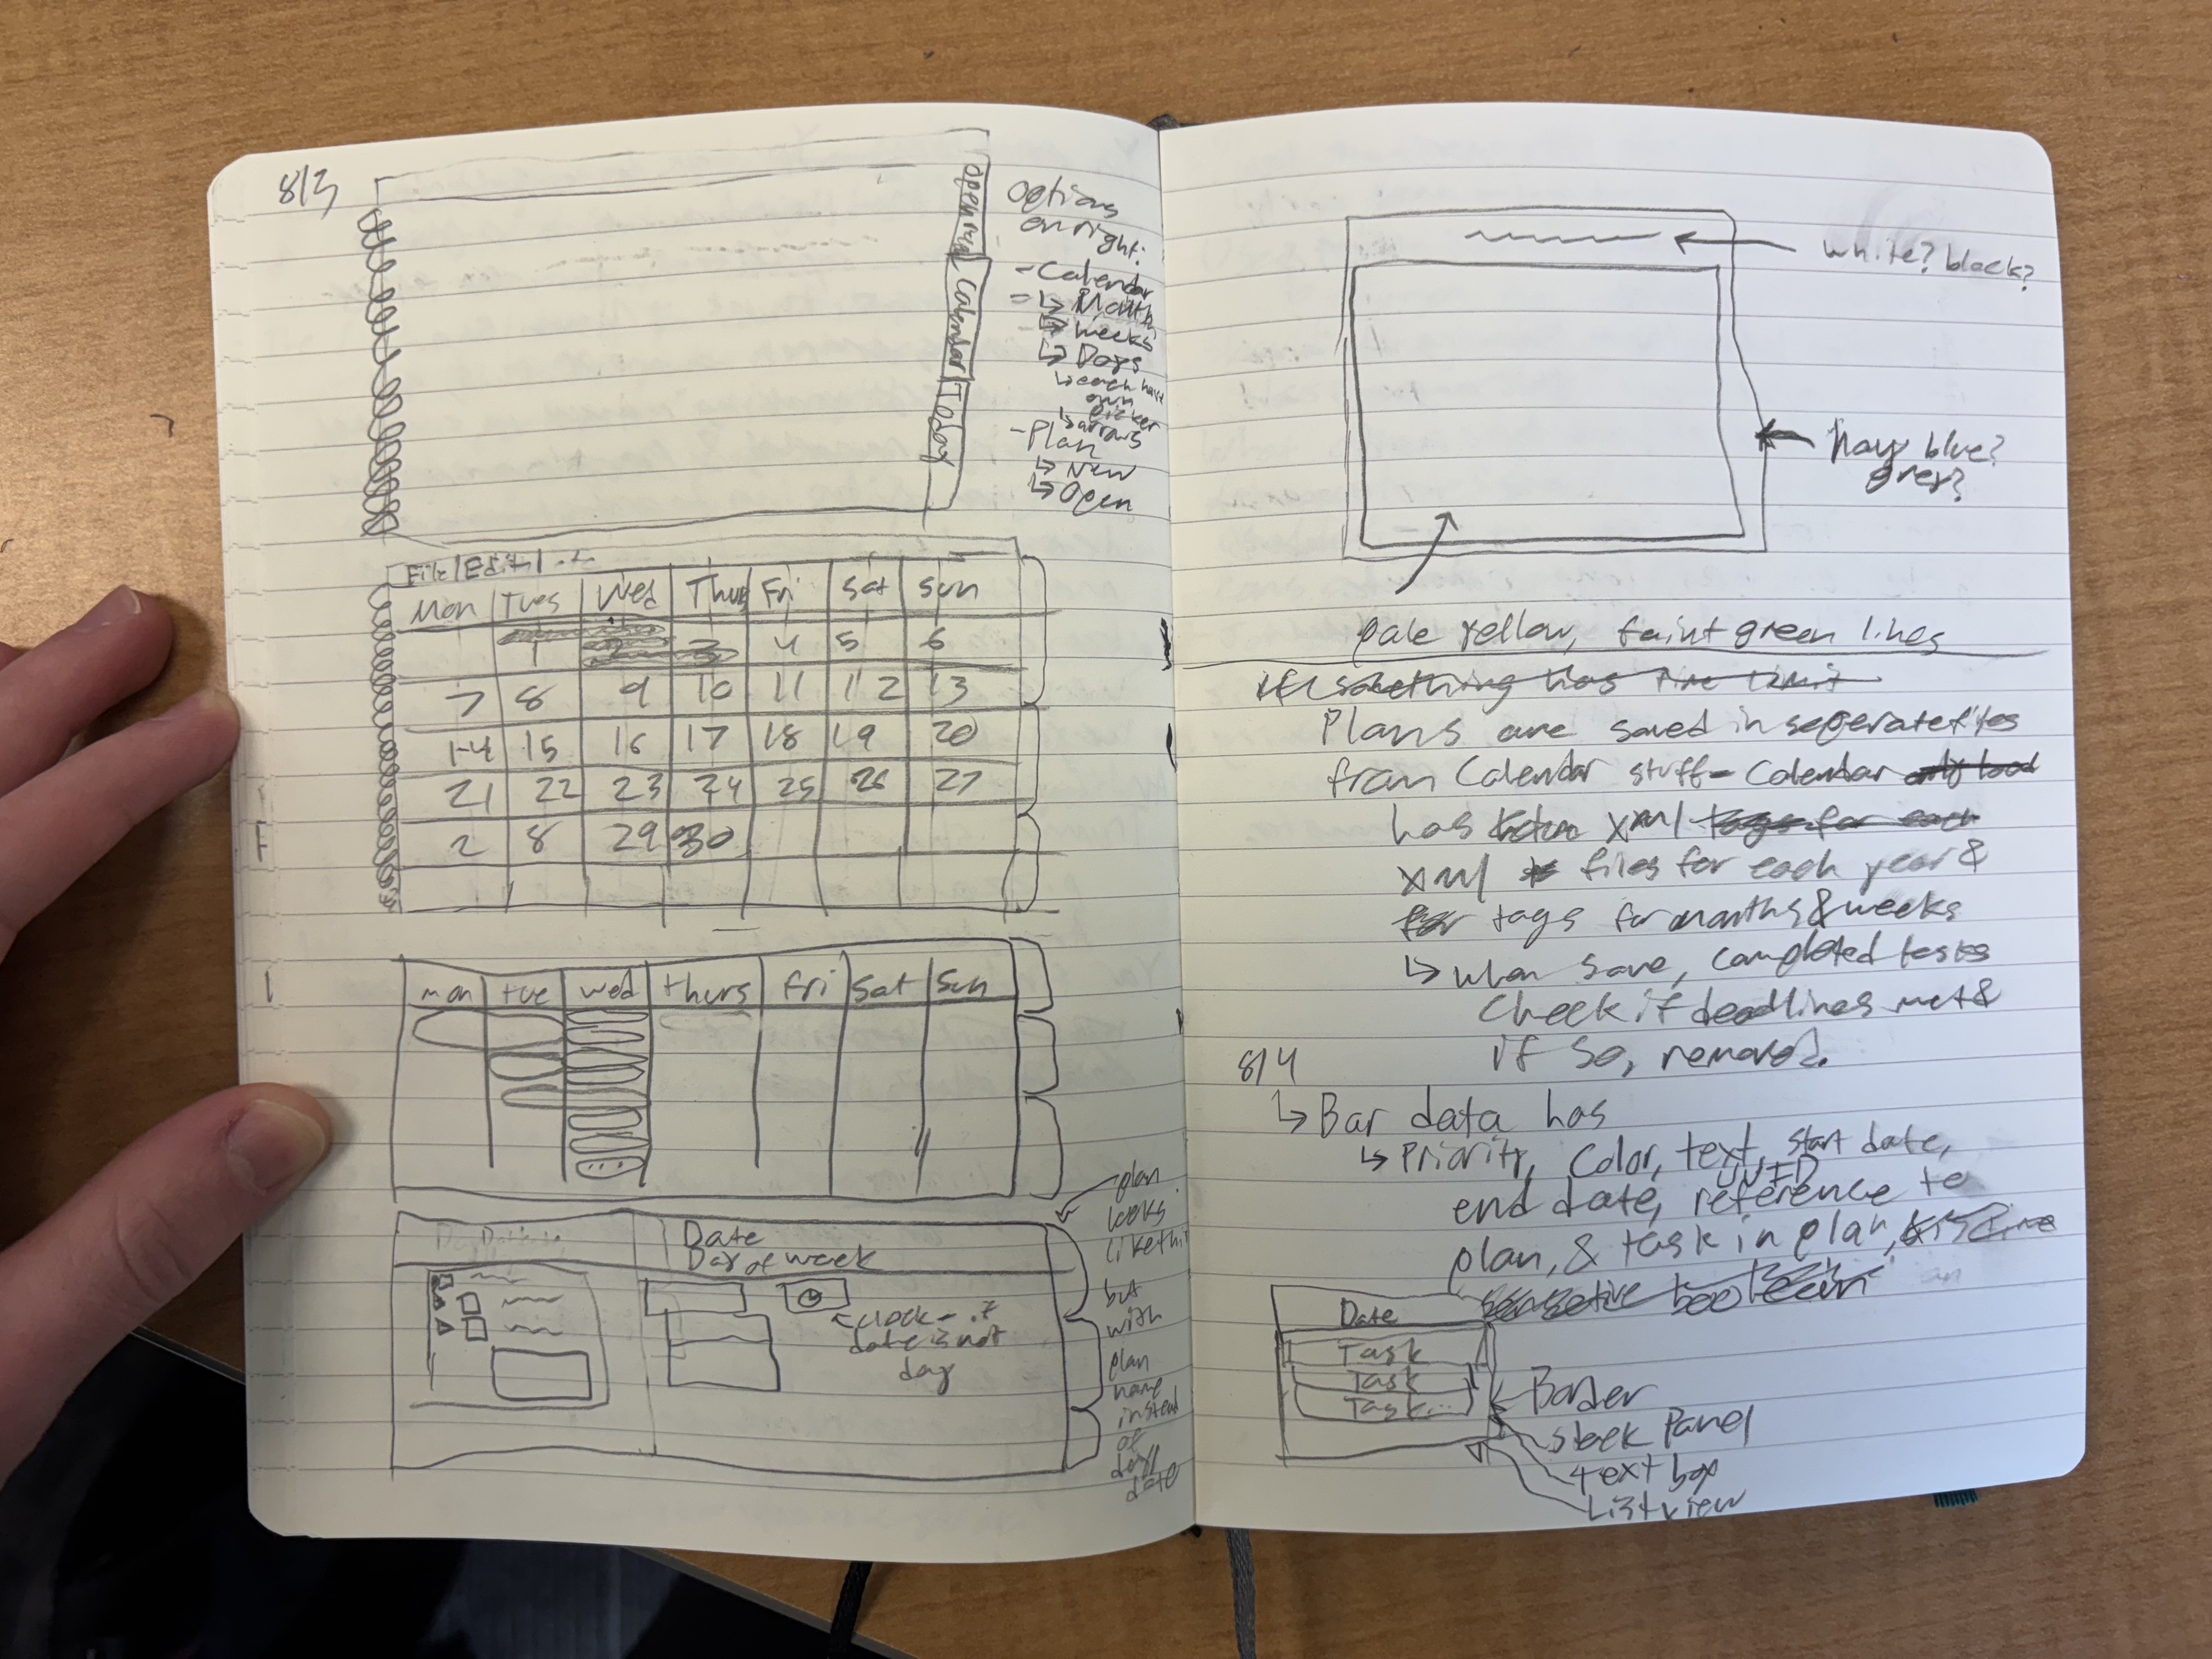 8/3
Open
Calendar
Today
Options
on right:
- Calendar
↳ Month
↳ Weeks
↳ Days
↳ each have
own
picker
↳ arrows
- Plan
↳ New
↳ Open
File|Edit|...
Mon Tues Wed Thus Fri Sat Sun
1 2 3 4 5 6
7 8 9 10 11 12 13
14 15 16 17 18 19 20
21 22 23 24 25 26 27
2 8 29 30
mon tue wed thurs fri sat sun
...
plan
looks
like this
but
with
plan
name
instead
of
day/
date
Date
Day of week
clock - if
date is not
day
white? black?
navy blue?
grey?
pale yellow, faint green lines
if something has time limit
Plans are saved in seperate files
from Calendar stuff - Calendar only load
has xml tags for each
xml files for each year &
for tags for months & weeks
↳ when save, completed tasks
Check if deadlines met &
if so, removed.
8/4
↳ Bar data has
↳ Priority, Color, text, start date,
end date, UUID reference to
plan, & task in plan,
boolean
Date
Task
Task
Task...
Border
stack Panel
text box
Listview